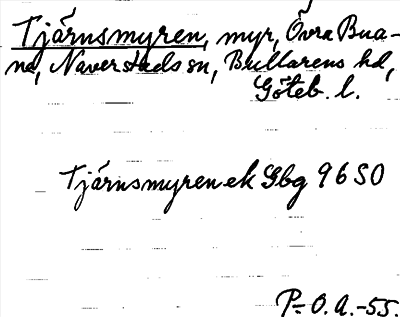 Tjärnsmyren, myr, Övra Bua-
na, Naverstads sn, Bullarens hd,
Göteb. l.
Tjärnsmyren ek Gbg 96 SO
P.-O. A. -55.